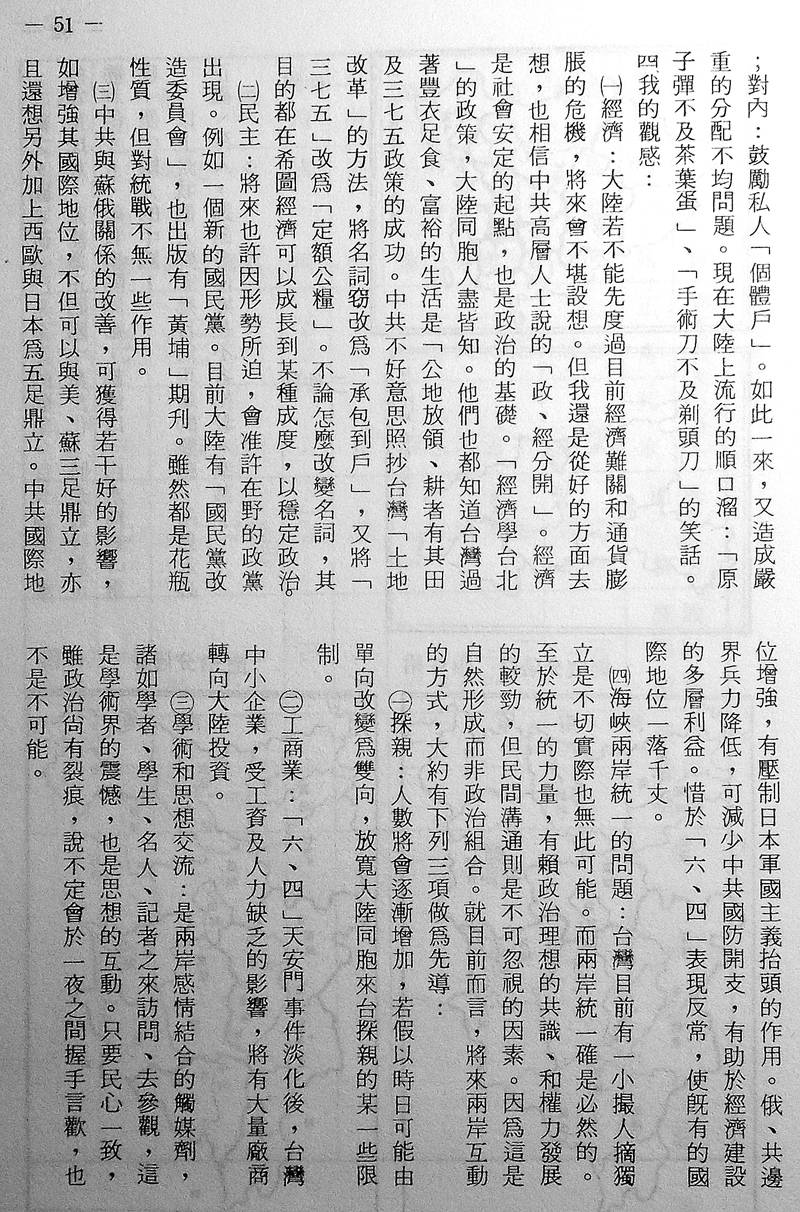 — 51 —
；對內：鼓勵私人「個體戶」。如此一來，又造成嚴
重的分配不均問題。現在大陸上流行的順口溜：「原
子彈不及茶葉蛋」、「手術刀不及剃頭刀」的笑話。
四我的觀感：
㈠經濟：大陸若不能先度過目前經濟難關和通貨膨
脹的危機，將來會不堪設想。但我還是從好的方面去
想，也相信中共高層人士說的「政、經分開」。經濟
是社會安定的起點，也是政治的基礎。「經濟學台北
」的政策，大陸同胞人盡皆知。他們也都知道台灣過
著豐衣足食、富裕的生活是「公地放領、耕者有其田
及三七五政策的成功。中共不好意思照抄台灣「土地
改革」的方法，將名詞窃改爲「承包到戶」，又將「
三七五」改爲「定額公糧」。不論怎麼改變名詞，其
目的都在希圖經濟可以成長到某種成度，以穩定政治。
㈡民主：將來也許因形勢所迫，會准許在野的政黨
出現。例如一個新的國民黨。目前大陸有「國民黨改
造委員會」，也出版有「黃埔」期刊。雖然都是花瓶
性質，但對統戰不無一些作用。
㈢中共與蘇俄關係的改善，可獲得若干好的影響，
如增強其國際地位，不但可以與美、蘇三足鼎立，亦
且還想另外加上西歐與日本爲五足鼎立。中共國際地
位增強，有壓制日本軍國主義抬頭的作用。俄、共邊
界兵力降低，可減少中共國防開支，有助於經濟建設
的多層利益。惜於「六、四」表現反常，使旣有的國
際地位一落千丈。
㈣海峽兩岸統一的問題：台灣目前有一小撮人搞獨
立是不切實際也無此可能。而兩岸統一確是必然的。
至於統一的力量，有賴政治理想的共識、和權力發展
的較勁，但民間溝通則是不可忽視的因素。因爲這是
自然形成而非政治組合。就目前而言，將來兩岸互動
的方式，大約有下列三項做爲先導：
㊀探親：人數將會逐漸增加，若假以時日可能由
單向改變爲雙向，放寬大陸同胞來台探親的某一些限
制。
㊁工商業：「六、四」天安門事件淡化後，台灣
中小企業，受工資及人力缺乏的影響，將有大量廠商
轉向大陸投資。
㊂學術和思想交流：是兩岸感情結合的觸媒劑，
諸如學者、學生、名人、記者之來訪問、去參觀，這
是學術界的震憾，也是思想的互動。只要民心一致，
雖政治尚有裂痕，說不定會於一夜之間握手言歡，也
不是不可能。